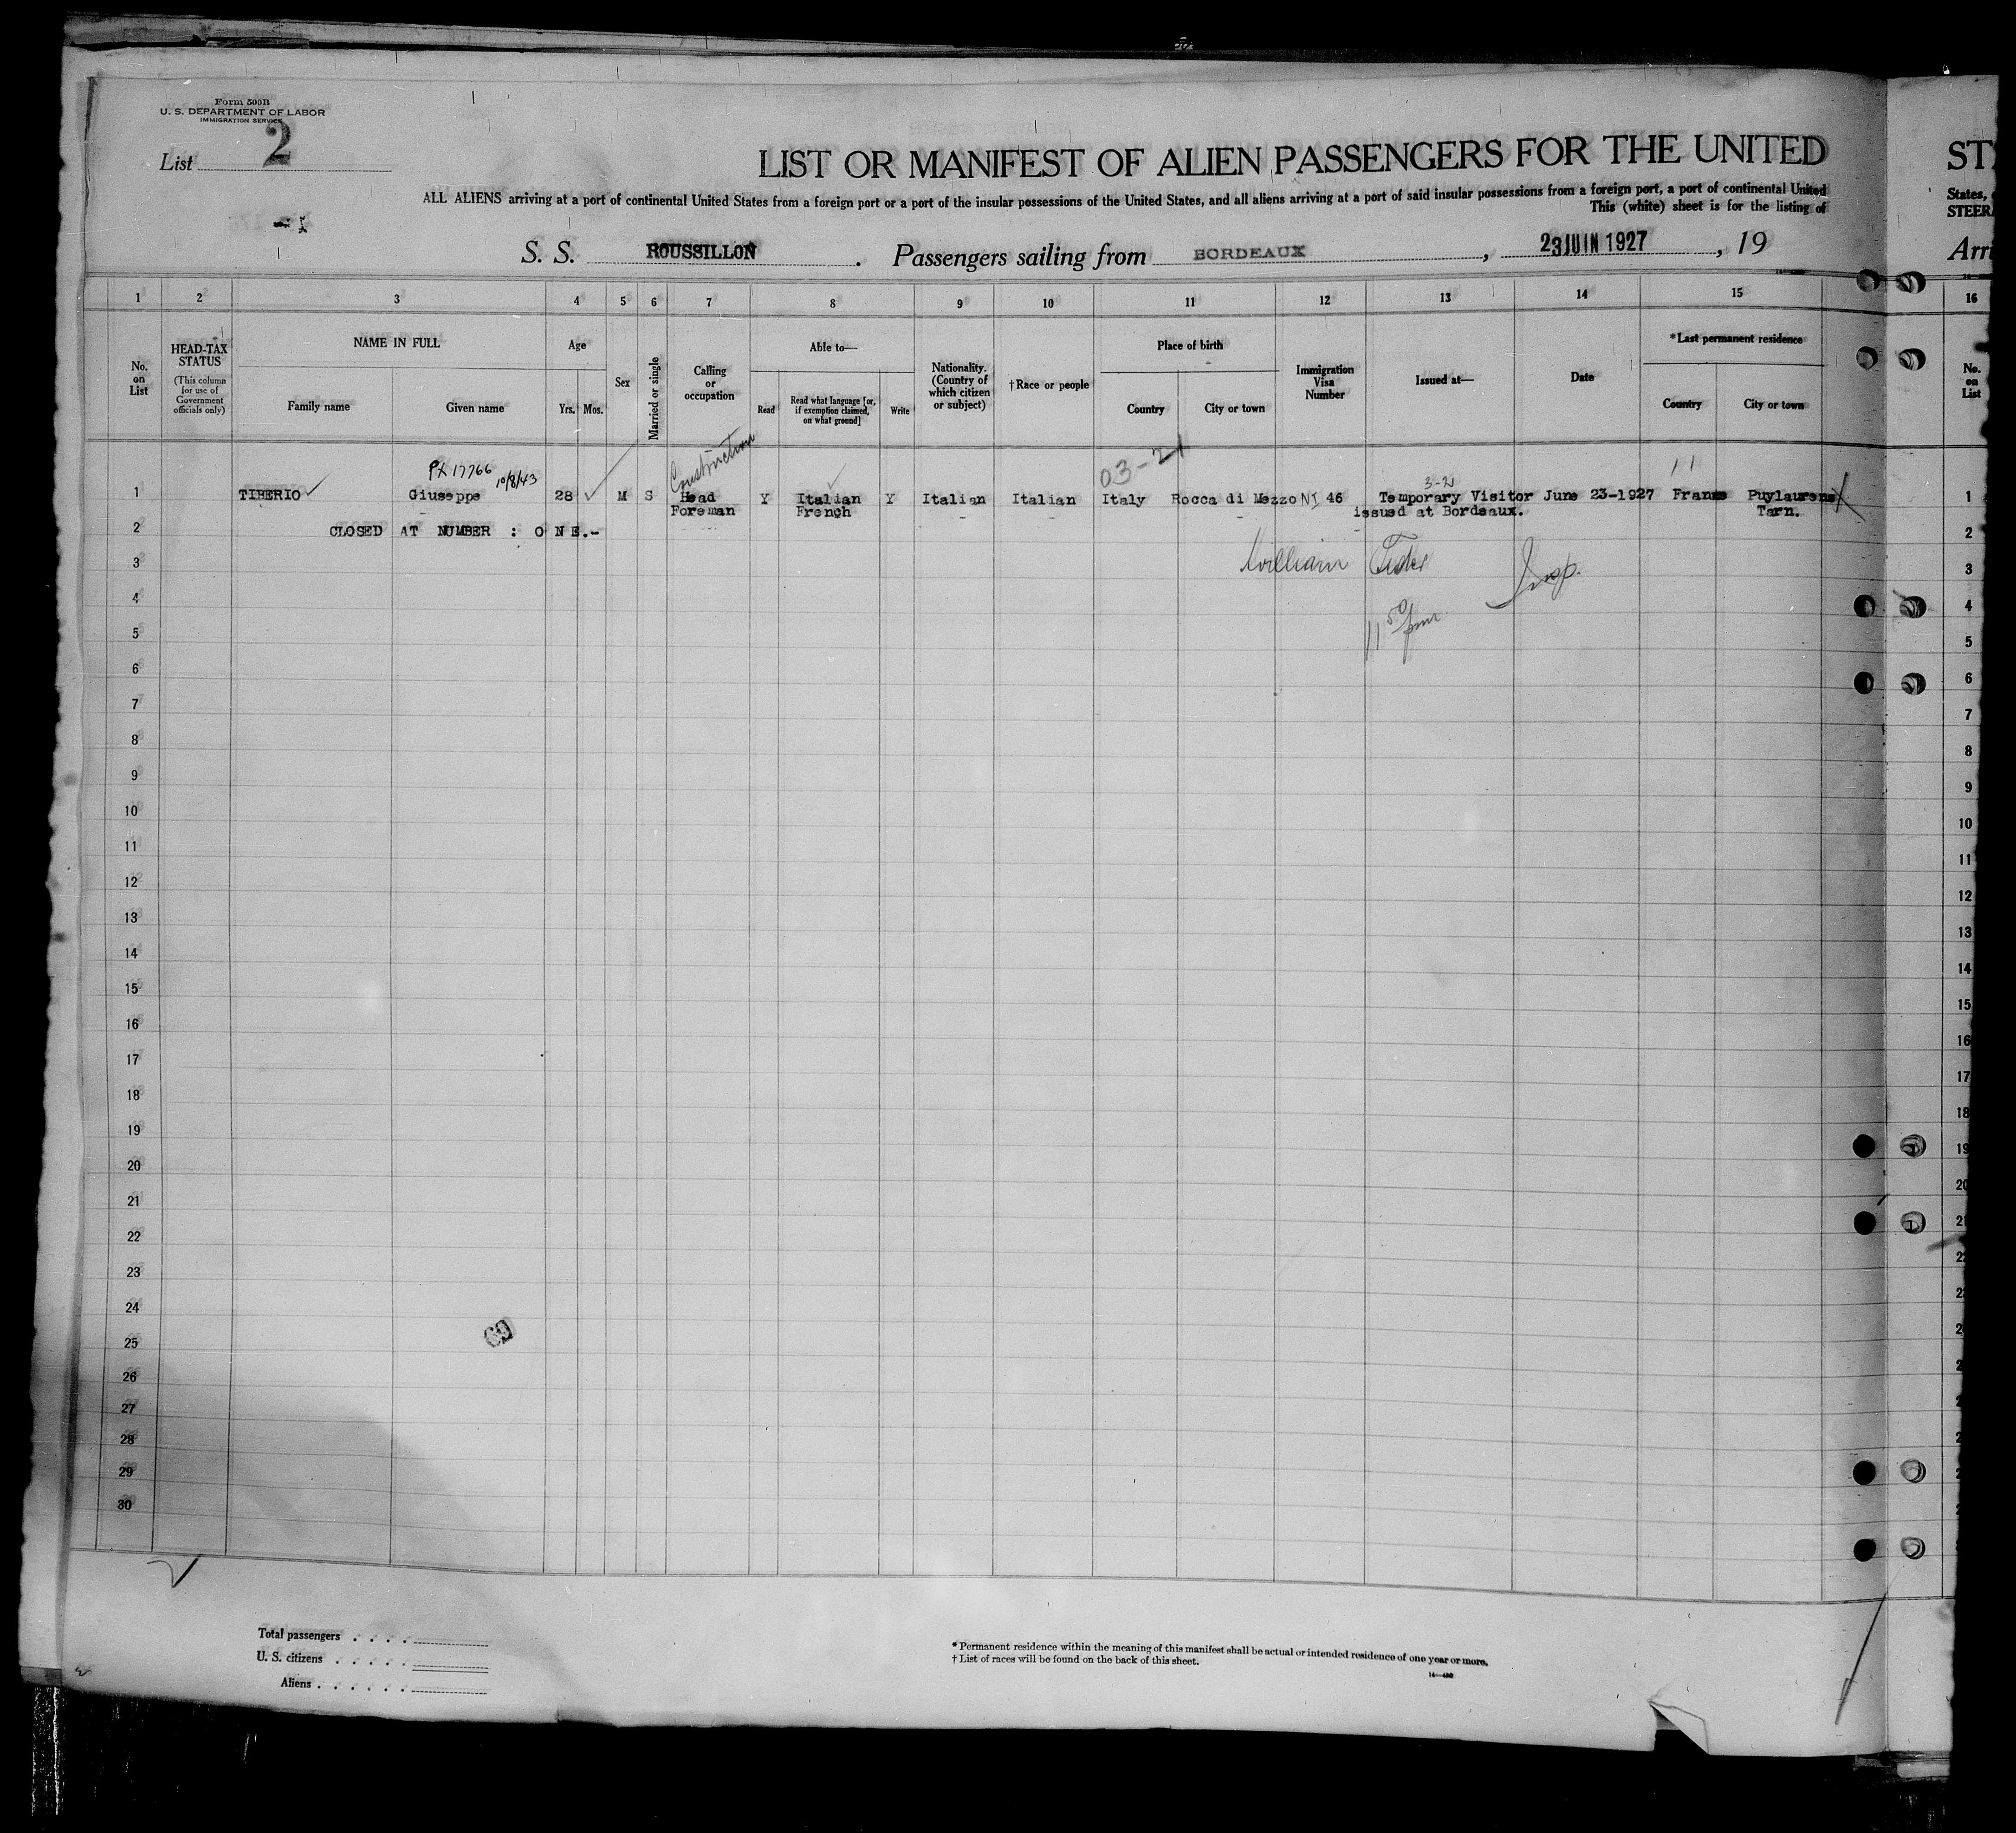 Form 500B
U. S. DEPARTMENT OF LABOR
IMMIGRATION SERVICE
List 2
LIST OR MANIFEST OF ALIEN PASSENGERS FOR THE UNITED
ST
ALL ALIENS arriving at a port of continental United States from a foreign port or a port of the insular possessions of the United States, and all aliens arriving at a port of said insular possessions from a foreign port, a port of continental United
States,
This (white) sheet is for the listing of
STEER
S. S. ROUSSILLON. Passengers sailing from BORDEAUX, 23 JUIN 1927, 19
Arri
1 2 3 4 5 6 7 8 9 10 11 12 13 14 15 16
No. on List
HEAD-TAX STATUS
(This column for use of Government officials only)
NAME IN FULL
Family name Given name
Age
Yrs. Mos.
Sex
Married or single
Calling or occupation
Able to—
Read
Read what language [or, if exemption claimed, on what ground]
Write
Nationality. (Country of which citizen or subject)
†Race or people
Place of birth
Country City or town
Immigration Visa Number
Issued at—
Date
*Last permanent residence
Country City or town
No. on List
PX 17766 10/8/43 Construction 03-21 3-2 11
1 TIBERIO Giuseppe 28 M S Head Y Italian Y Italian Italian Italy Rocca di Mezzo NI 46 Temporary Visitor June 23-1927 France Puylaurens 1
Foreman French issued at Bordeaux. Tarn.
2 CLOSED AT NUMBER : O N E.- 2
William Insp.
3 3
4 4
11 50 pm
5 5
6 6
7 7
8 8
9 9
10 10
11 11
12 12
13 13
14 14
15 15
16 16
17 17
18 18
19 19
20 20
21 21
22
23
24
25
26
27
28
29
30
Total passengers . . . .
U. S. citizens . . . . .
Aliens . . . . . .
*Permanent residence within the meaning of this manifest shall be actual or intended residence of one year or more.
†List of races will be found on the back of this sheet.